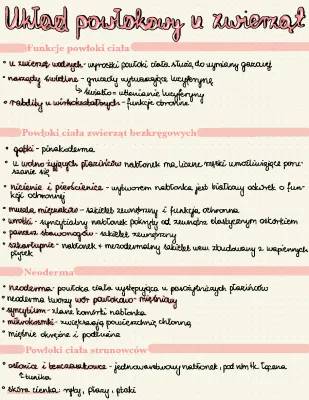 Układ powłokowy u zwierząt
Funkcje powłoki ciała
• u zwierząt wodnych - wyrostki powłoki ciała służą do wymiany gazowej
• narządy świetlne - gruczoły wytwarzające lucyferynę
↳ światło = utlenianie lucyferyny
• rabdity u wirkokształtnych - funkcje obronne
Powłoki ciała zwierząt bezkręgowych
• gąbki - pinakoderma
• u wolno żyjących płazińców nabłonek ma liczne rzęski umożliwiające poru-
szanie się
• nicienie i pierścienice - wytworem nabłonka jest białkowy oskórek o fun-
kcji ochronnej
• muszla mięczaków - szkielet zewnętrzny i funkcja ochronna
• wrotki - syncytialny nabłonek pokryty od zewnątrz elastycznym oskórkiem
• pancerz stawonogów - szkielet zewnętrzny
• szkarłupnie - nabłonek + mezodermalny szkielet wew. zbudowany z wapiennych
płytek
Neoderma
• neoderma - powłoka ciała występująca u pasożytniczych płazińców
• neoderma tworzy wór powłokowo-mięśniowy
• syncytium - zlane komórki nabłonka
• mikrokosmki - zwiększają powierzchnię chłonną
• mięśnie okrężne i podłużne
Powłoki ciała strunowców
• osłonice i bezczaszkowce - jednowarstwowy nabłonek, pod nim tk. łączna
↳ tunika
• skóra cienka - ryby, płazy, ptaki